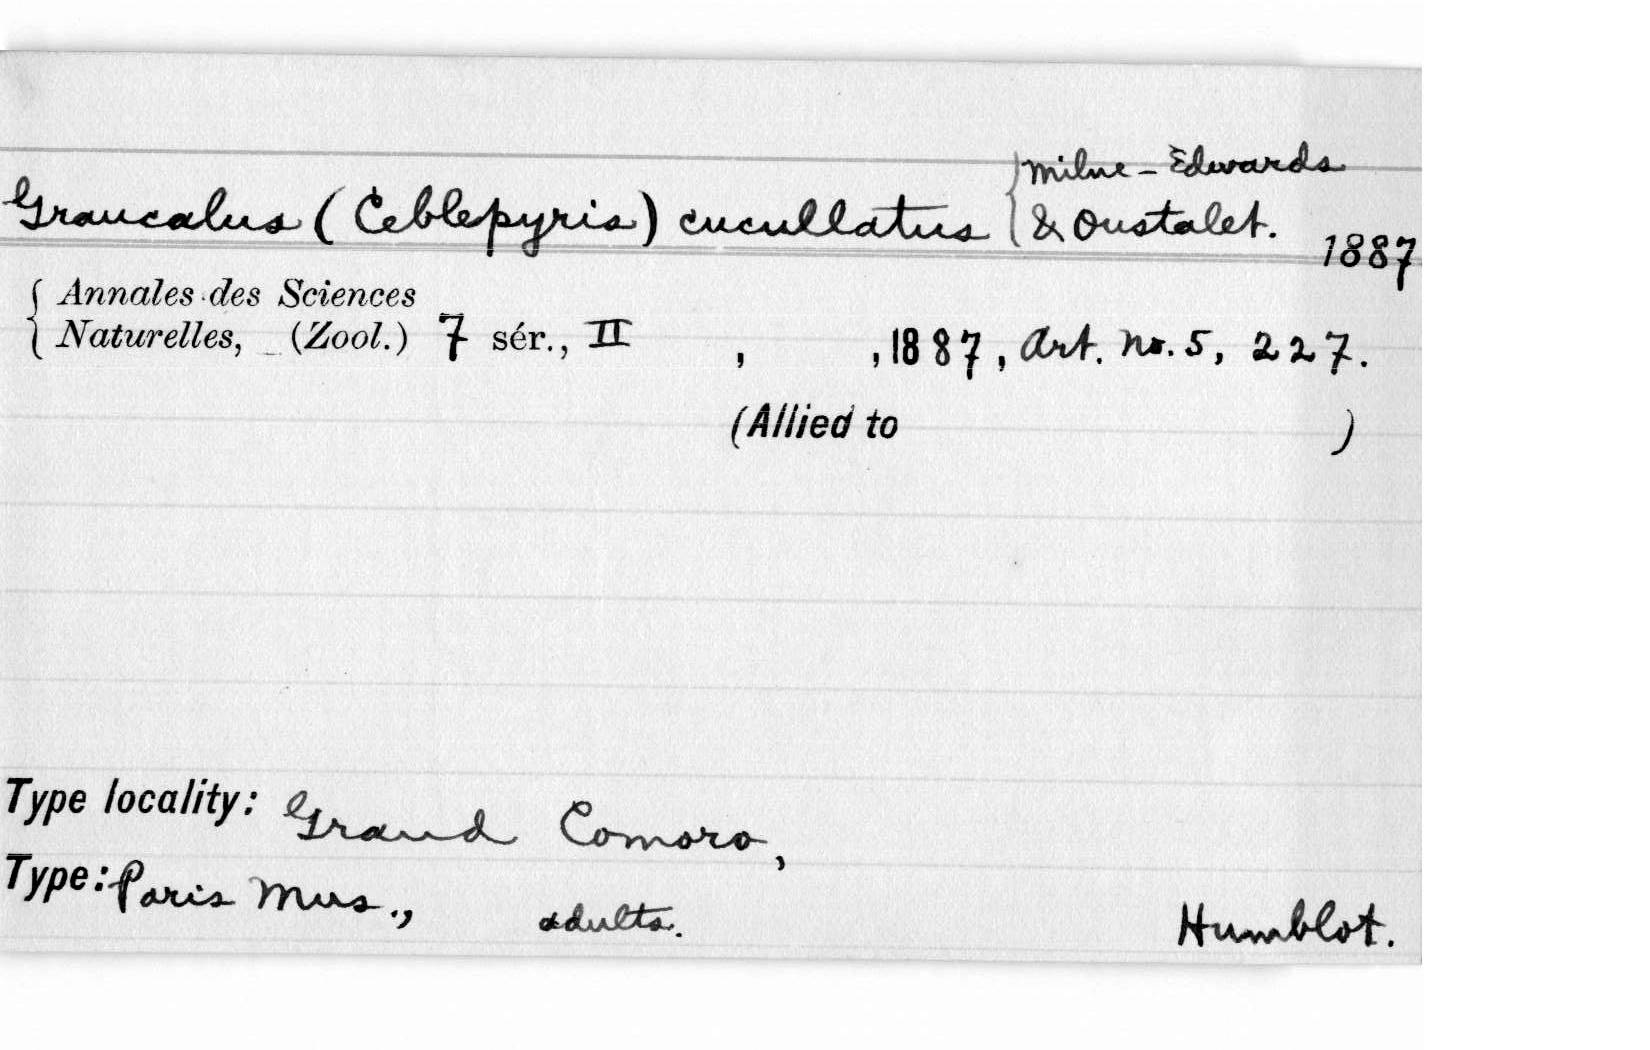 Graucalus (Ceblepyris) cucullatus { Milne-Edwards
& Oustalet. 1887
{ Annales des Sciences
Naturelles, (Zool.) 7 sér., II , , 1887, Art. No. 5, 227.
(Allied to )
Type locality: Grand Comoro,
Type: Paris Mus., adults. Humblot.